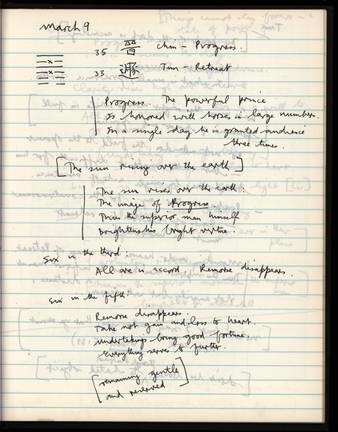 March 9
35 晋 Chin - Progress.
33 遯 Tun - Retreat
Progress. The powerful prince
Is honored with horses in large numbers.
In a single day he is granted audience
three times.
[The sun rising over the earth]
The sun rises over the earth:
The image of Progress
Thus the superior man himself
Brightens his bright virtue.
Six in the third
All are in accord Remorse disappears.
Six in the fifth.
Remorse disappears.
Take not gain and loss to heart.
undertakings bring good fortune.
everything serves to further.
[remaining gentle
and reserved]